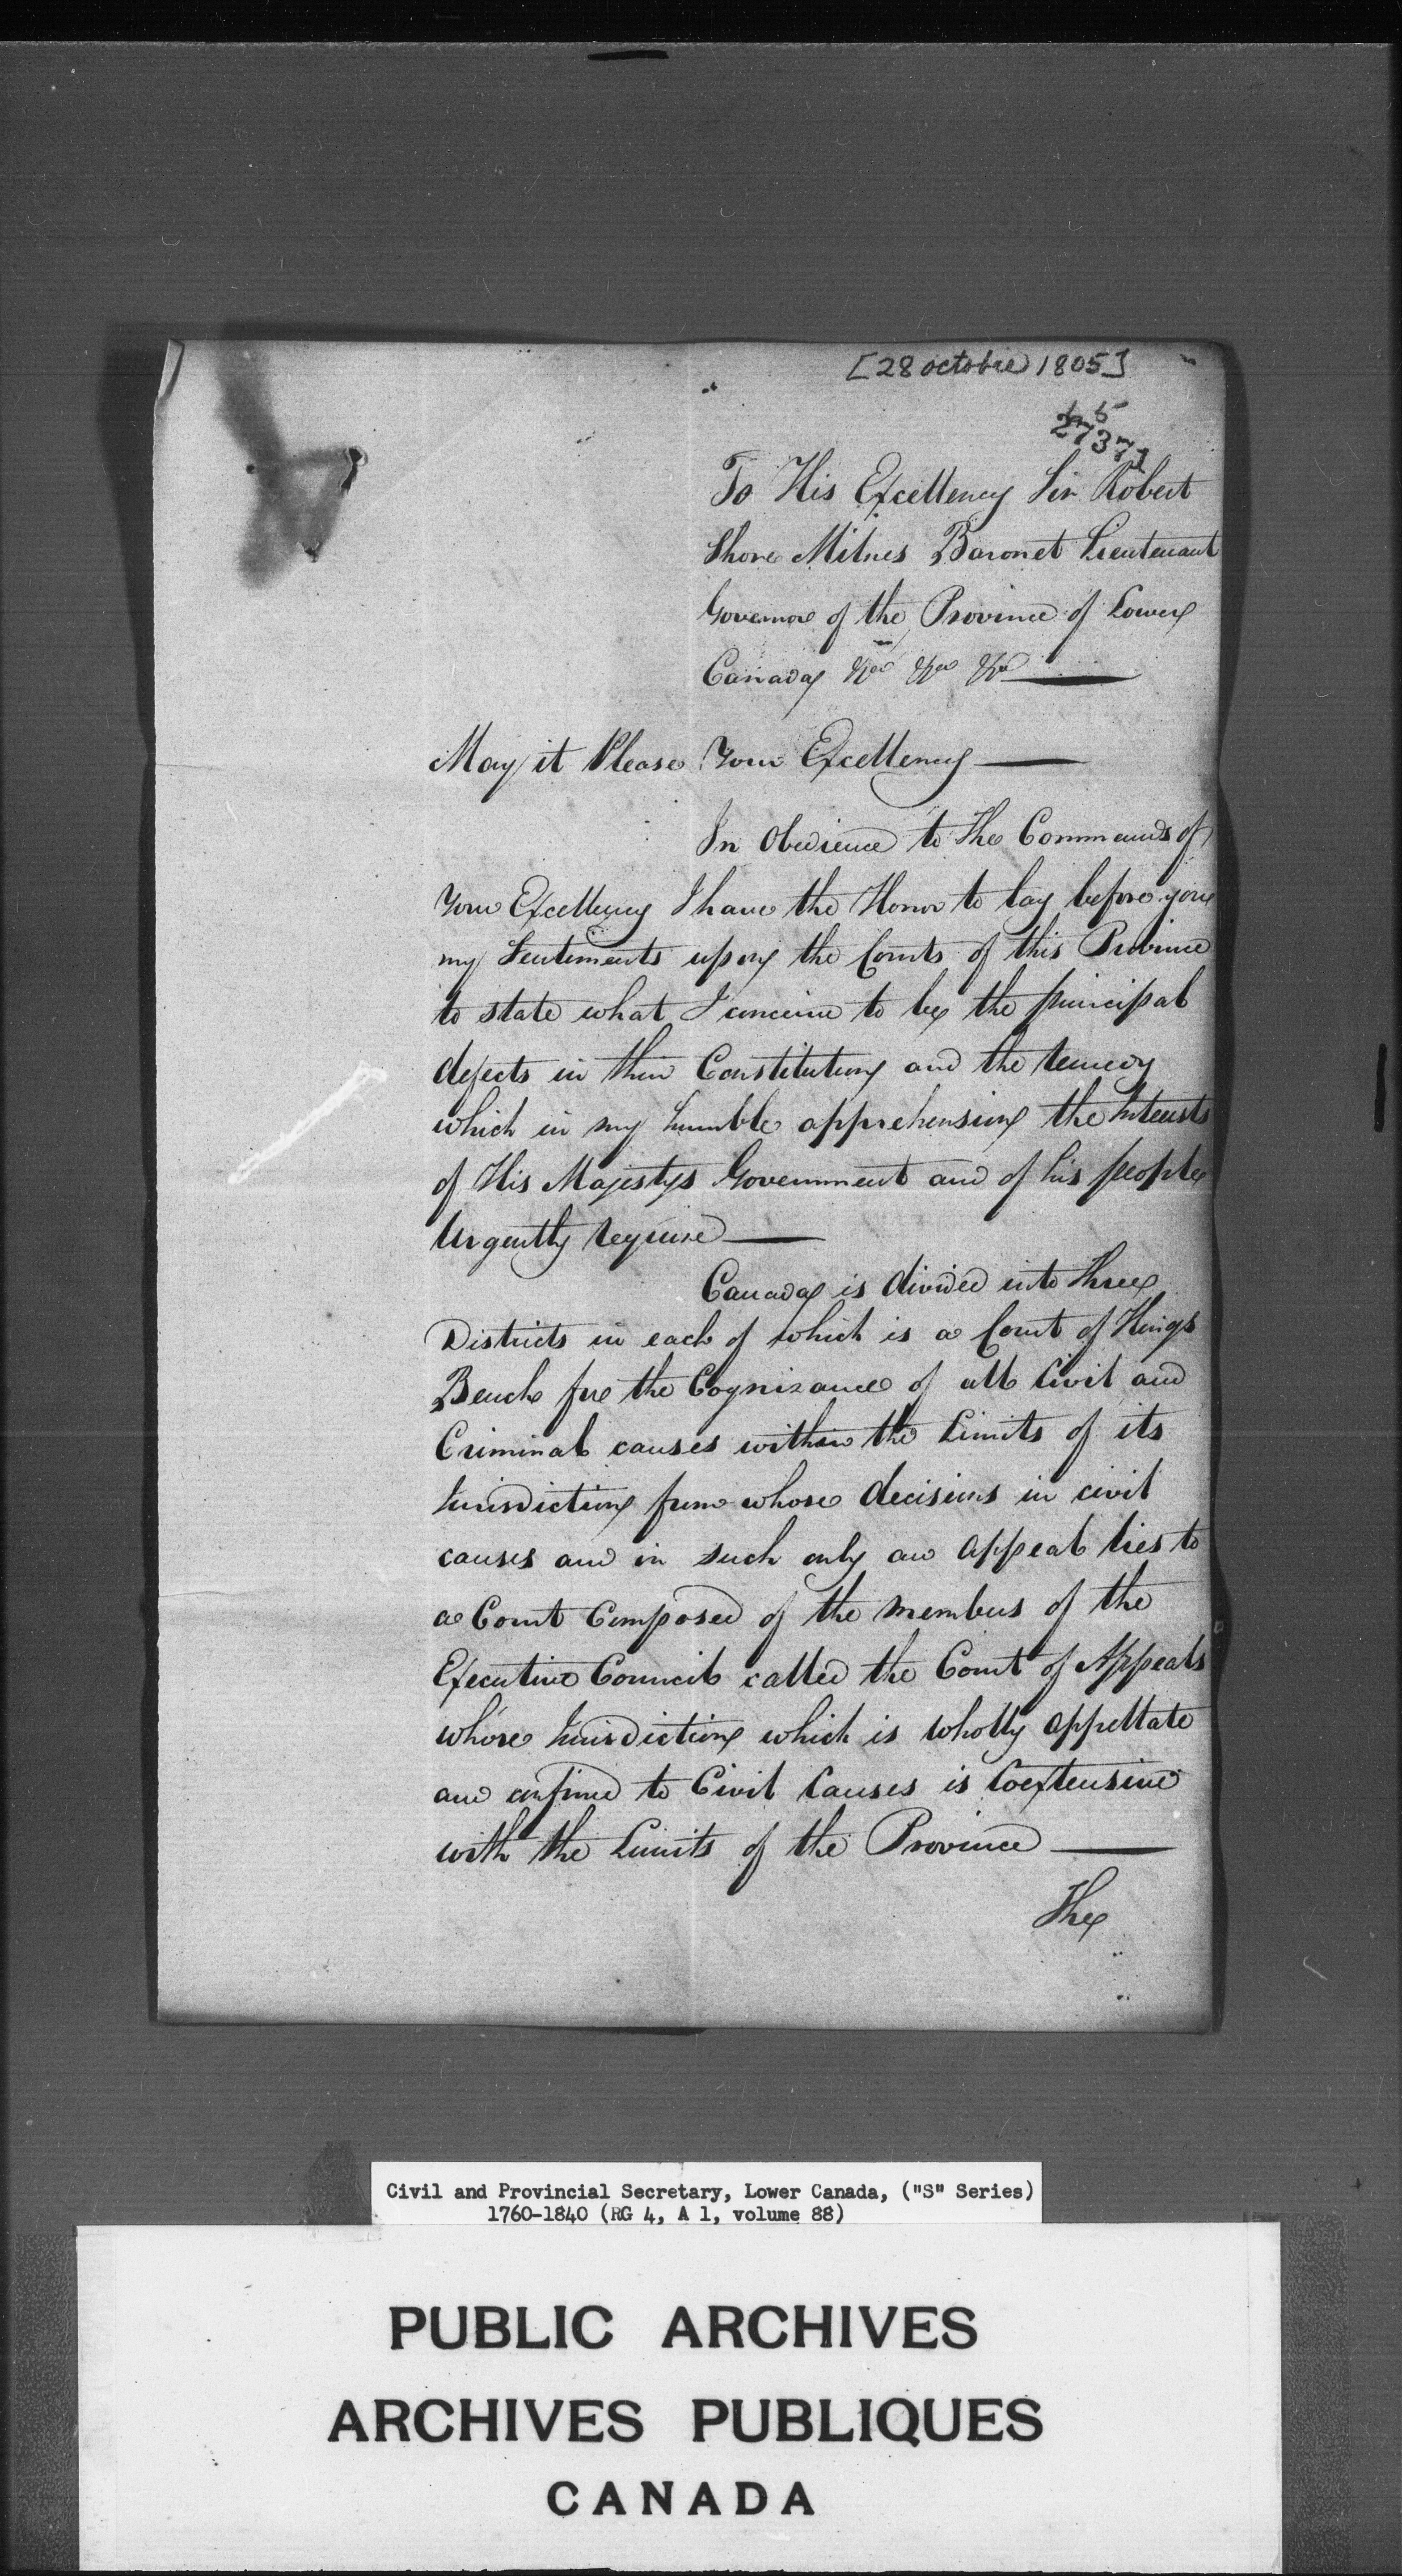 [28 octobre 1805]
To His Excellency Sir Robert
Shore Milnes Baronet Lieutenant
Governor of the Province of Lower
Canada &ca &ca &ca
May it Please Your Excellency
In Obedience to the Commands of
Your Excellency I have the Honor to lay before you
my Sentiments upon the Courts of this Province
to state what I conceive to be the principal
defects in their Constitution and the remedy
which in my humble apprehension the Interests
of His Majestys Government and of his people
Urgently require
Canada is divided into three
Districts in each of which is a Court of Kings
Bench for the Cognizance of all Civil and
Criminal causes within the Limits of its
Jurisdiction from whose decisions in civil
causes and in such only an appeal lies to
a Court Composed of the members of the
Executive Council called the Court of Appeals
whose Jurisdiction which is wholly appellate
and confined to Civil Causes is Coextensive
with the Limits of the Province
The
Civil and Provincial Secretary, Lower Canada, ("S" Series)
1760-1840 (RG 4, A 1, volume 88)
PUBLIC ARCHIVES
ARCHIVES PUBLIQUES
CANADA